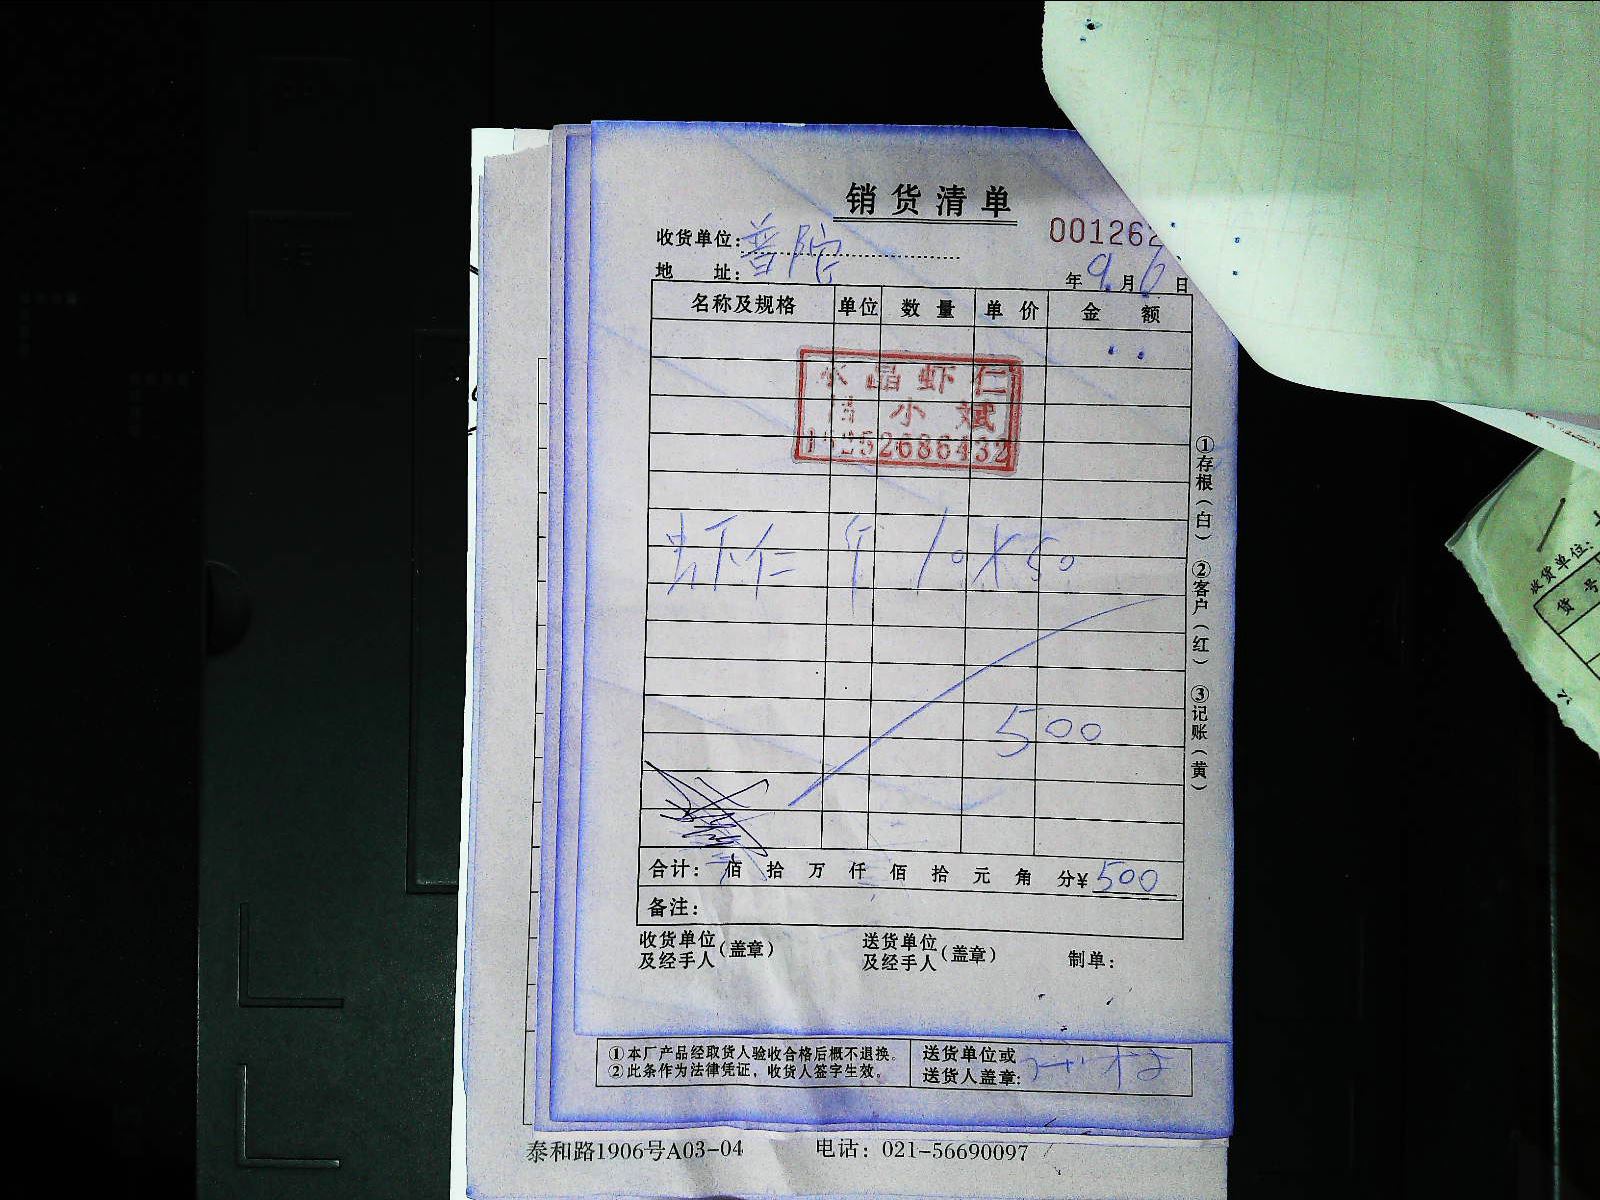 销货清单
收货单位：普陀
001262
地 址：
年9月6日
名称及规格 单位 数量 单价 金额
水晶虾仁
小斌
虾仁 斤 10×50
500
合计： 佰 拾 万 仟 佰 拾 元 角 分¥500
备注：
收货单位及经手人（盖章） 送货单位及经手人（盖章） 制单：
①存根（白） ②客户（红） ③记账（黄）
①本厂产品经取货人验收合格后概不退换。
②此条作为法律凭证，收货人签字生效。
送货单位或
送货人盖章：
泰和路1906号A03-04 电话：021-56690097
收货单位：
货号